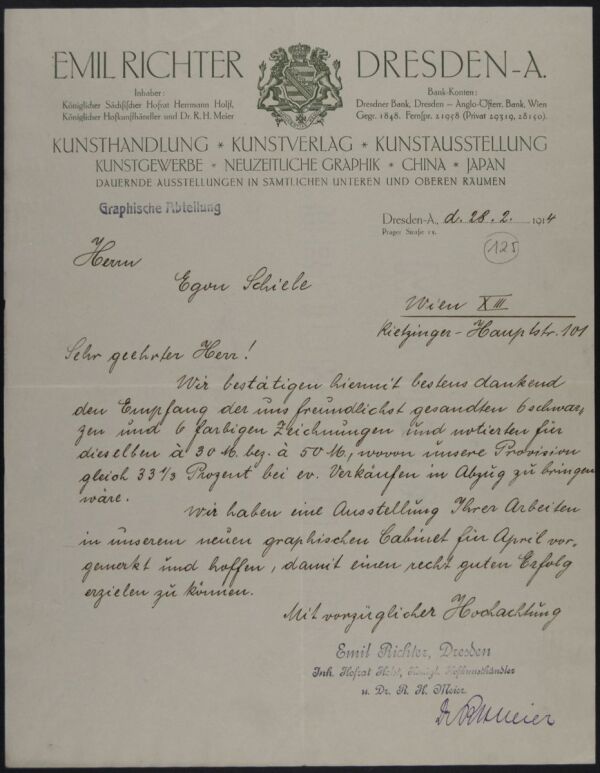 EMIL RICHTER DRESDEN-A.
Inhaber:
Königlicher Sächsischer Hofrat Hermann Holst,
Königlicher Hofkunsthändler und Dr. R. H. Meier
Bank-Konten:
Dresdner Bank, Dresden – Anglo-Österr. Bank, Wien
Gegr. 1848. Fernspr. 21958 (Privat 29319, 28150).
KUNSTHANDLUNG * KUNSTVERLAG * KUNSTAUSSTELLUNG
KUNSTGEWERBE * NEUZEITLICHE GRAPHIK * CHINA * JAPAN
DAUERNDE AUSSTELLUNGEN IN SÄMTLICHEN UNTEREN UND OBEREN RÄUMEN
Graphische Abteilung
Dresden-A., d. 28. 2. 1914
Prager Straße 13.
125
Herrn
Egon Schiele
Wien XIII
Hietzinger-Hauptstr. 101
Sehr geehrter Herr!
Wir bestätigen hiermit bestens dankend
den Empfang der uns freundlichst gesandten 6 schwar-
zen und 6 farbigen Zeichnungen und notierten für
dieselben à 30 M. bez. à 50 M, wovon unsere Provision
gleich 33 1/3 Prozent bei ev. Verkäufen in Abzug zu bringen
wäre.
Wir haben eine Ausstellung Ihrer Arbeiten
in unserem neuen graphischen Cabinet für April vor-
gemerkt und hoffen, damit einen recht guten Erfolg
erzielen zu können.
Mit vorzüglicher Hochachtung
Emil Richter, Dresden
Inh. Hofrat Holst, Königl. Hofkunsthändler
u. Dr. R. H. Meier
Dr RHMeier